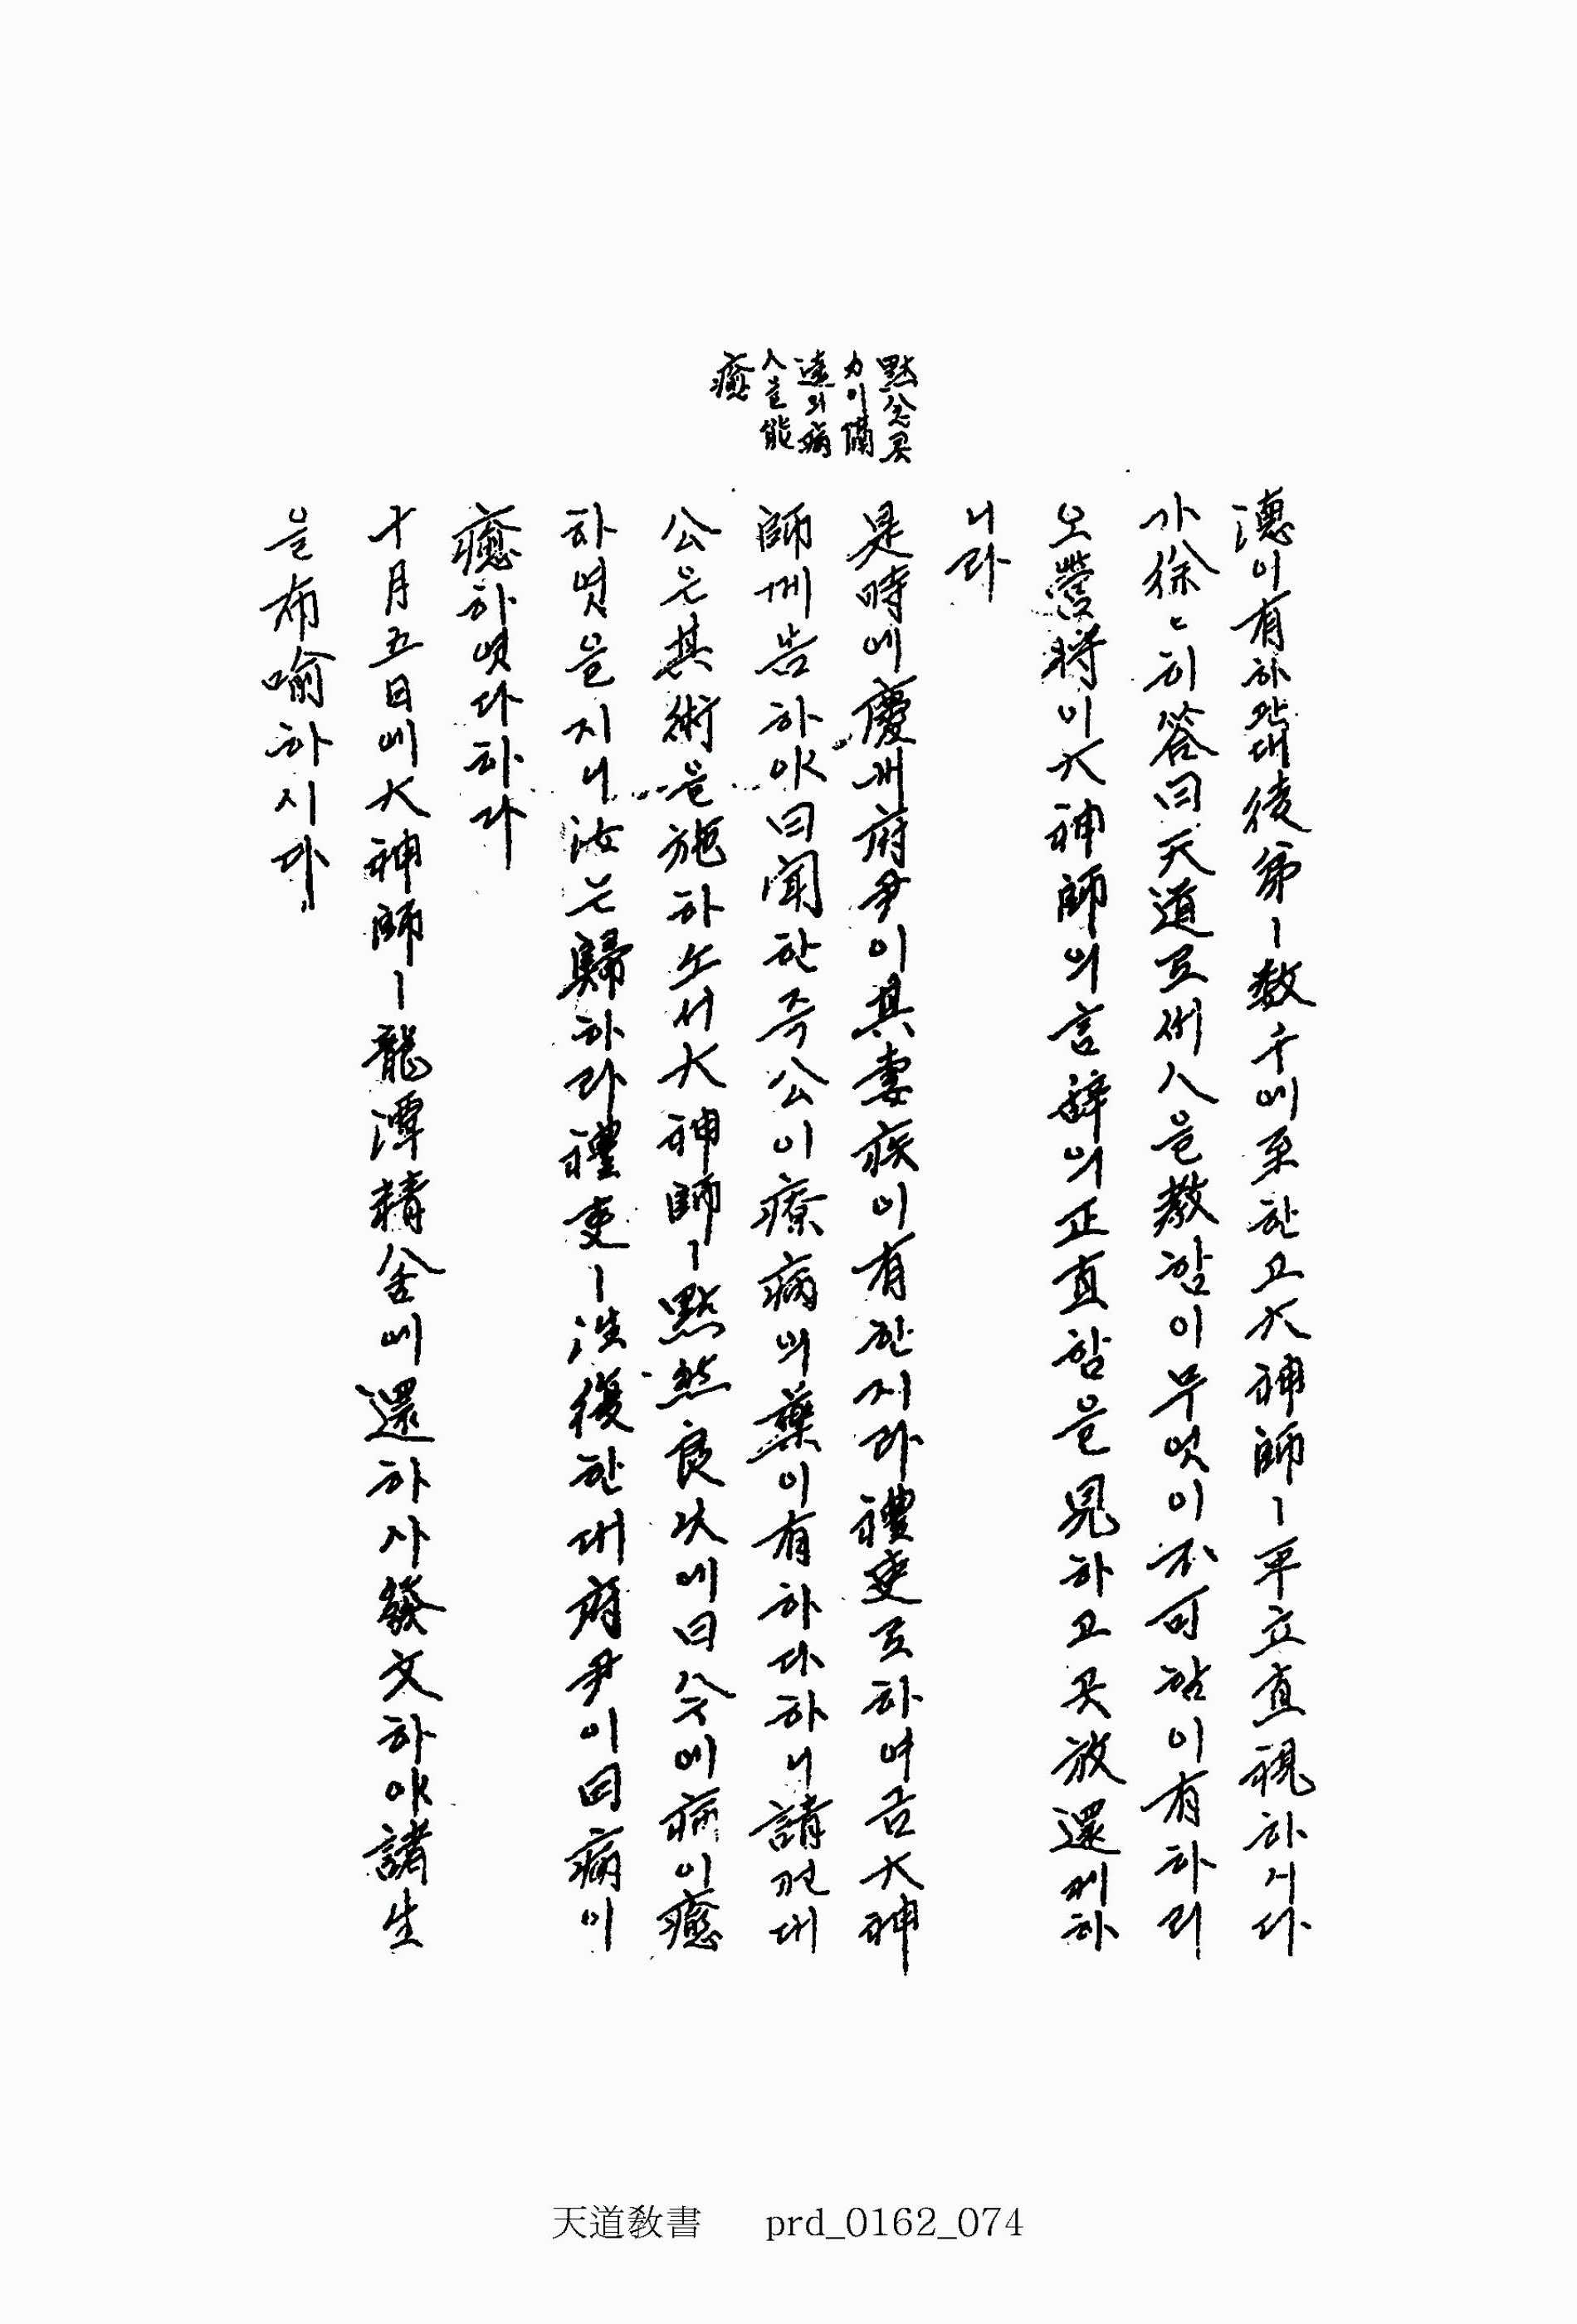 默念又
力이隔
遠의病
人을能
癒
憑이有하관대徒弟ㅣ數千에至한고大神師ㅣ平立直視하시다
가徐々히答曰天道로써人을敎함이무엇이不可함이有하리
오營將이大神師의言辭의正直함을見하고又放還케하
니라
是時에慶州府尹이其妻疾이有한지라禮吏로하여금大神
師께告하야曰聞한즉公이療病의藥이有하다하니請컨대
公은其術을施하소서大神師ㅣ默然良久에曰今에病이癒
하엿을지니汝는歸하라禮吏ㅣ復한대府尹이曰病이
癒하엿다하라
十月五日에大神師ㅣ龍潭精舍에還하사發文하야諸生
을布喩하시다
天道敎書 prd_0162_074